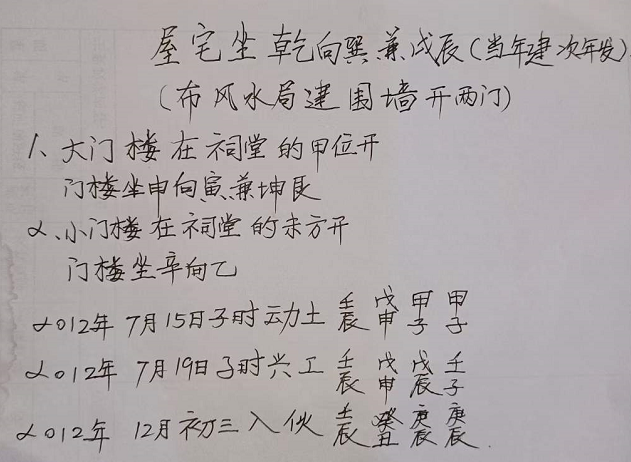 屋宅坐乾向巽兼戌辰(当年建次年发)
(布风水局建围墙开两门)
1、大门楼在祠堂的甲位开
门楼坐申向寅兼坤艮
2、小门楼在祠堂的未方开
门楼坐辛向乙
2012年7月15日子时动土 壬辰 戊申 甲子 甲子
2012年7月19日子时兴工 壬辰 戊申 戊辰 壬子
2012年12月初三入伙 壬辰 癸丑 庚辰 庚辰.